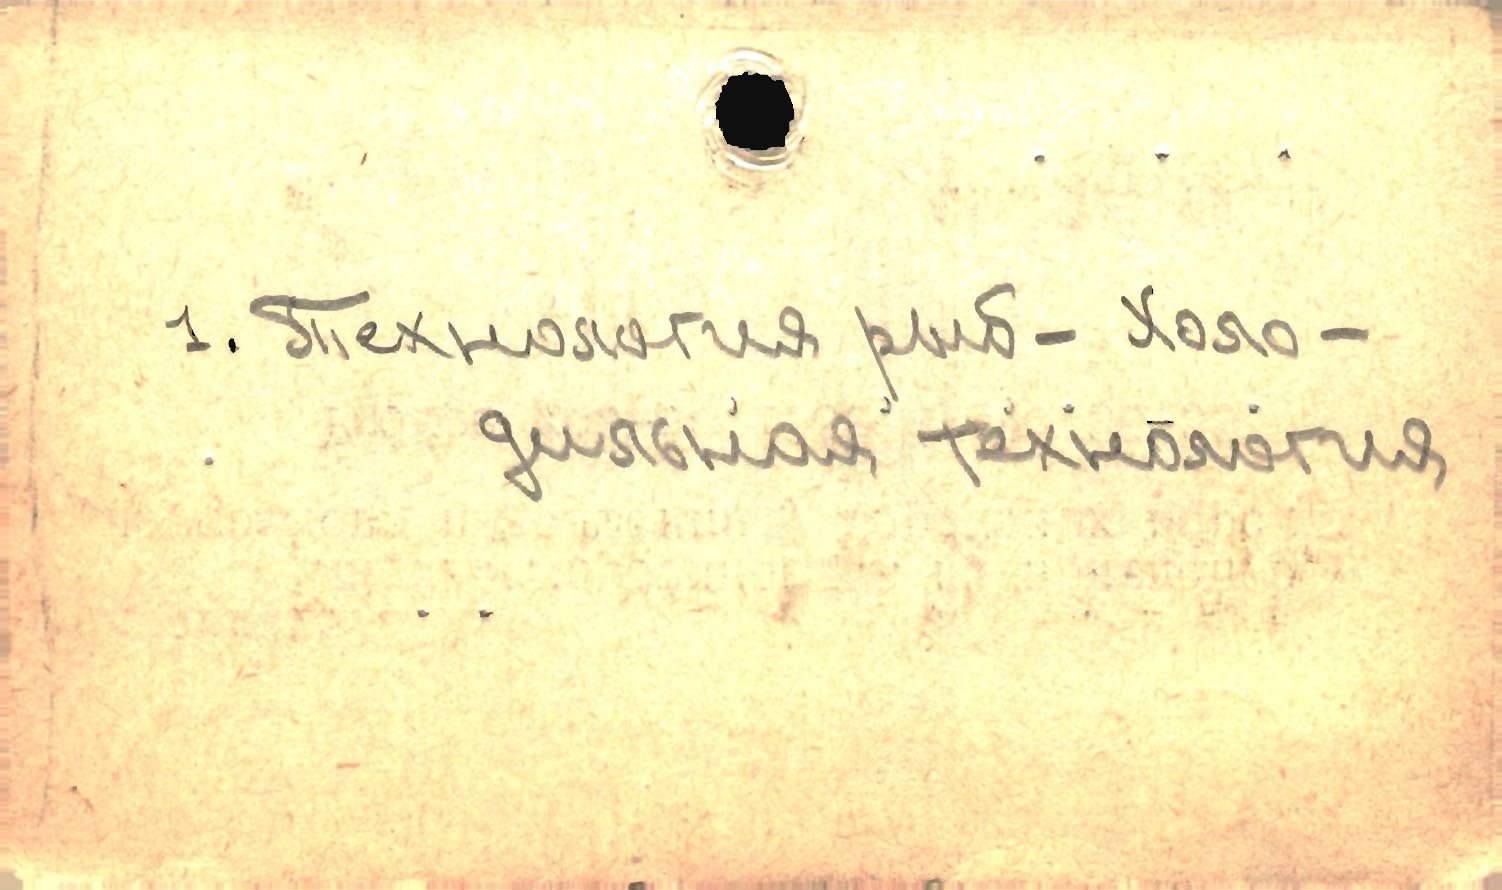 1. Технология рыб - Холо-
дильная технология